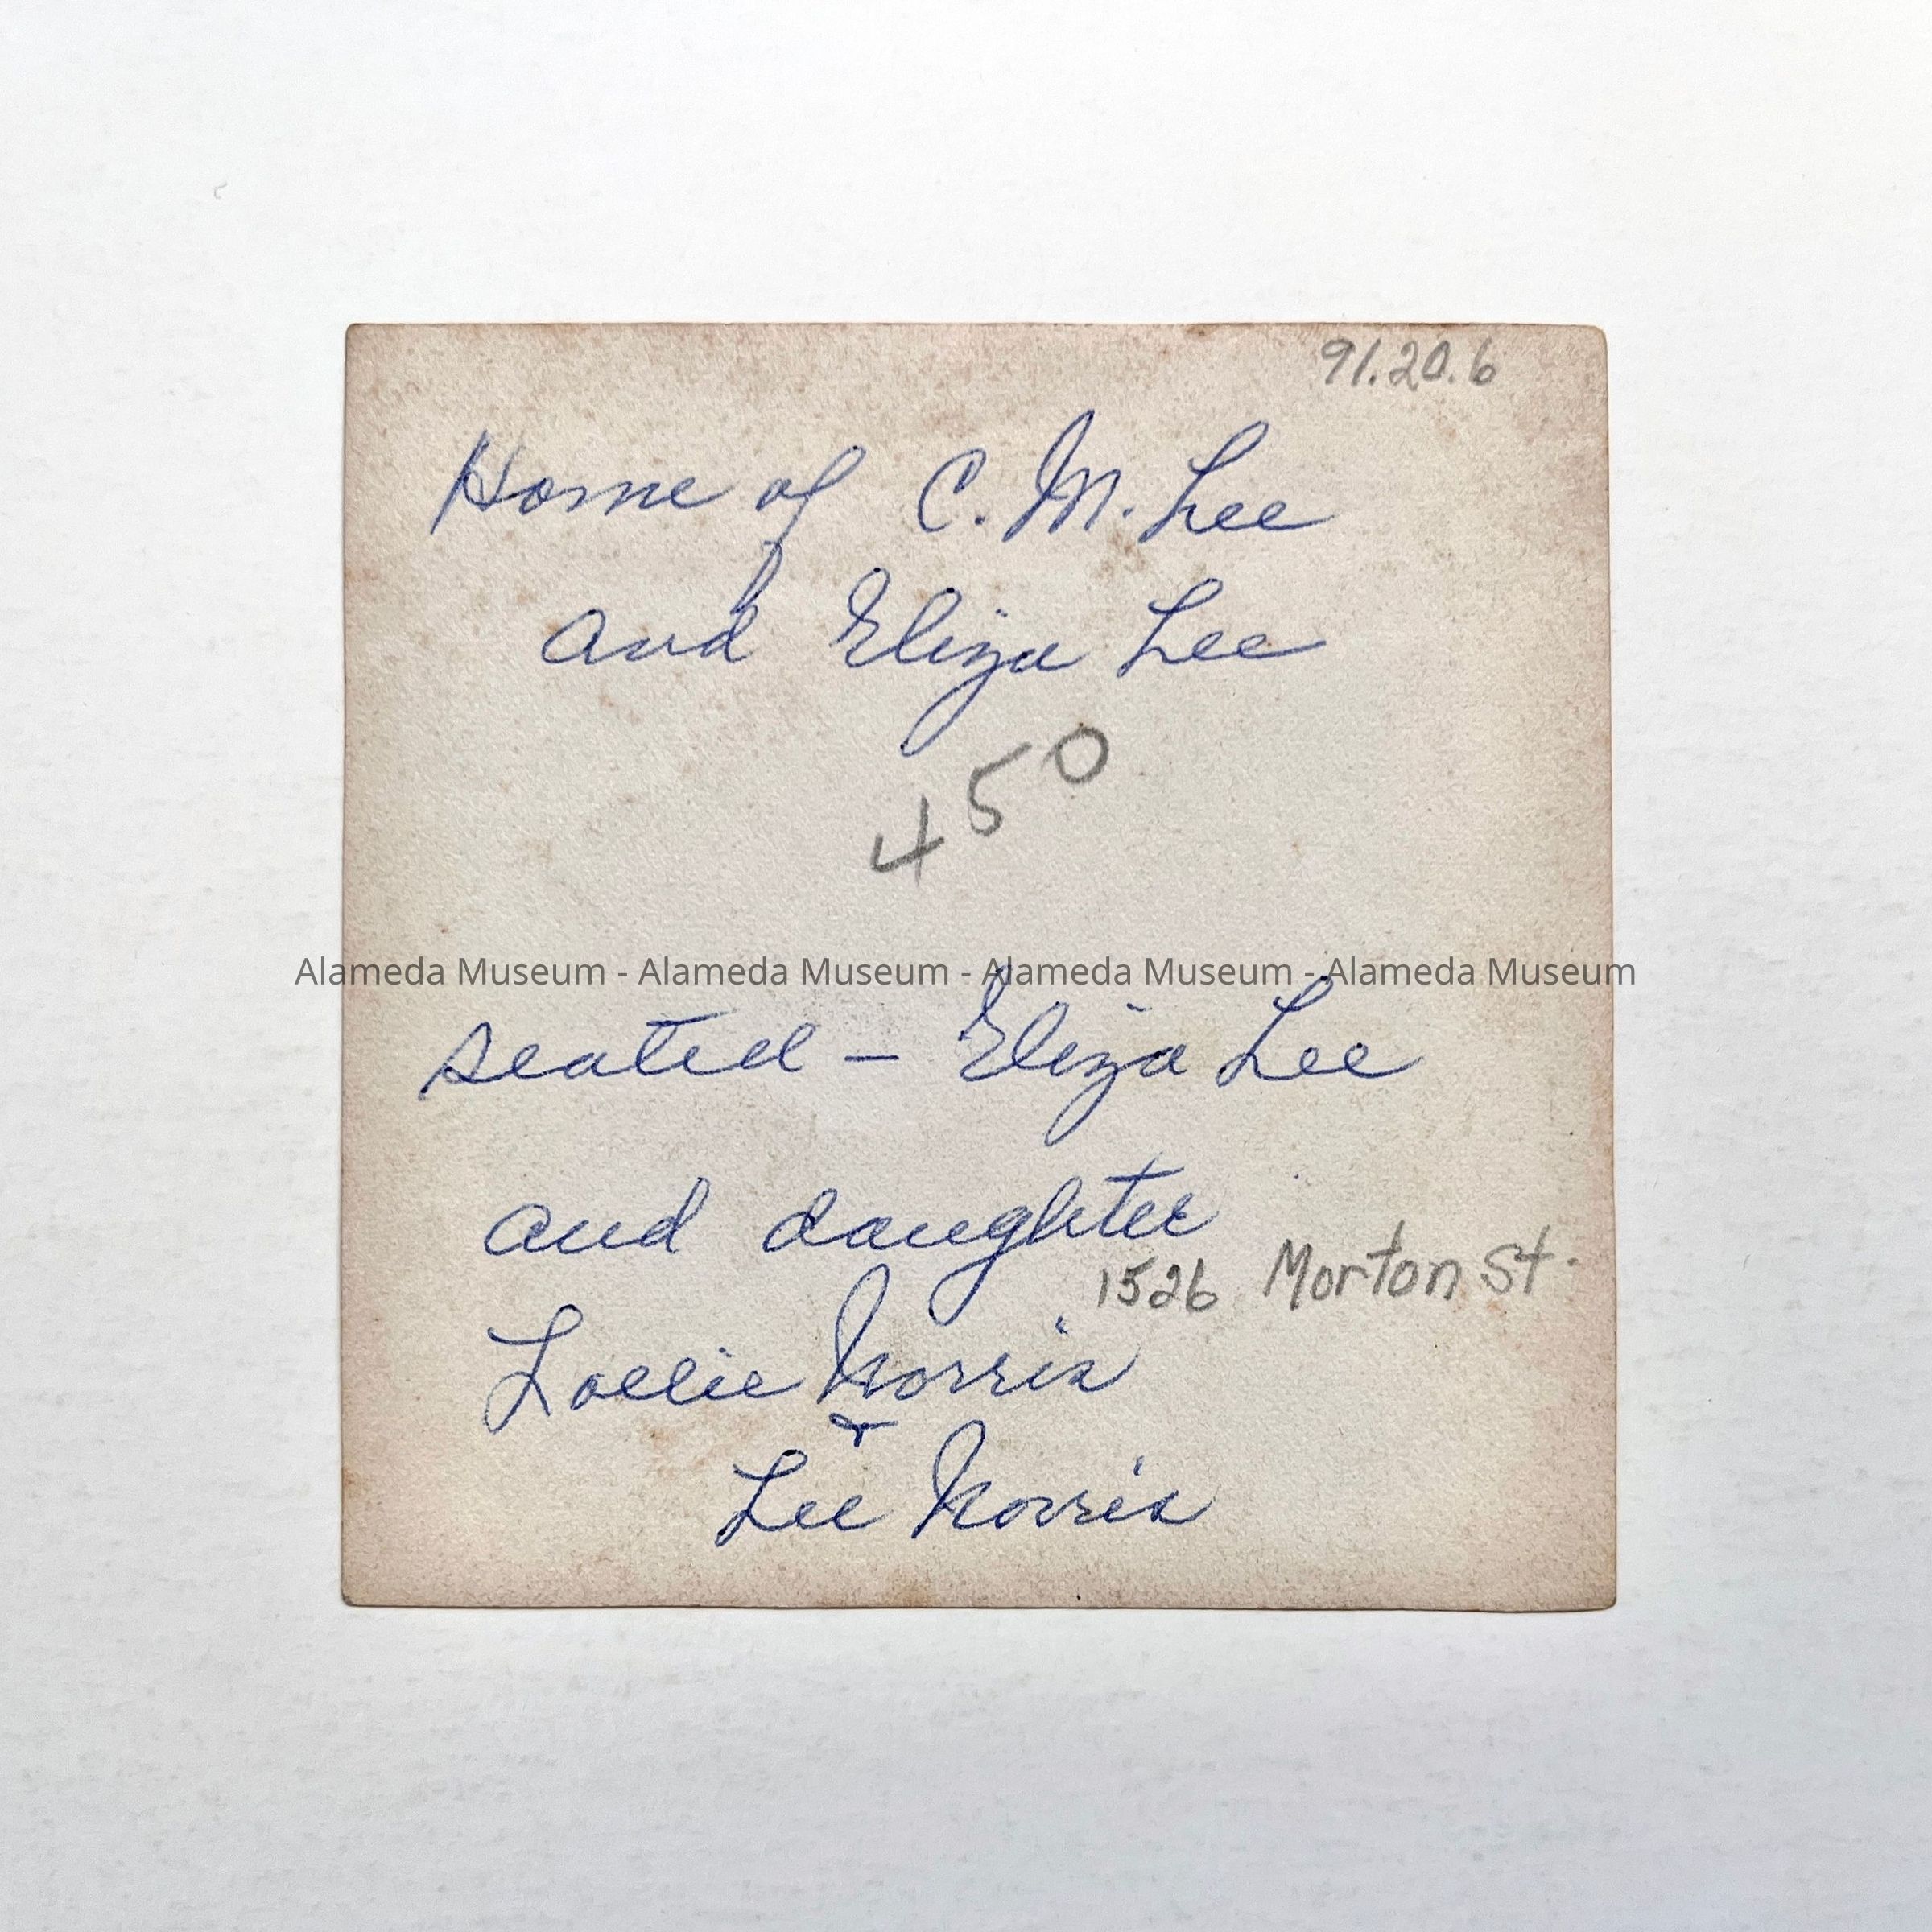 91.20.6
Home of C. M. Lee
and Eliza Lee
450
Alameda Museum - Alameda Museum - Alameda Museum - Alameda Museum
seated – Eliza Lee
and daughter
1526 Morton St.
Lollie Norris
&
Lee Norris